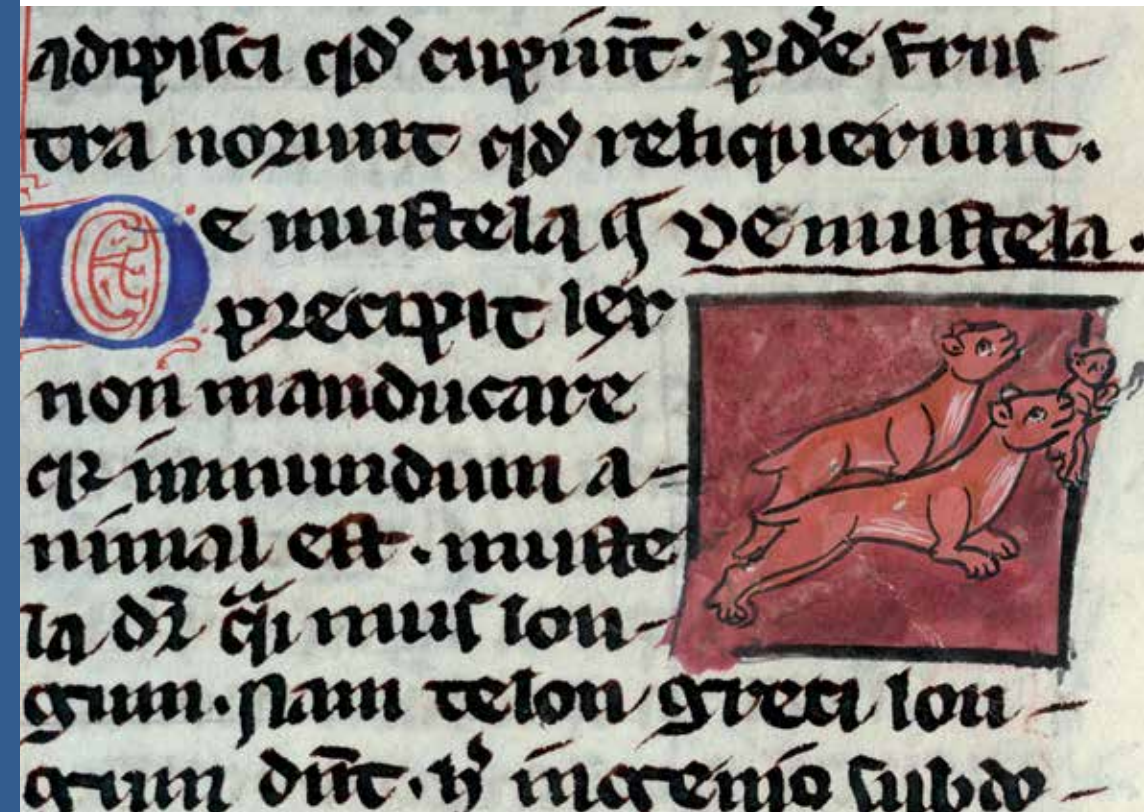 adipisci qď cupiūt: ꝑdēe frus-
tra norunt qď reliquerunt.
De mustela q̄ De mustela.
precipit lex
non manducare
qꝛ inmundum a-
nimal est. muste
la dr̄ q̄i mus lon-
gum. Nam telon greci lon-
gum dn̄t. h' ingenio subdo-